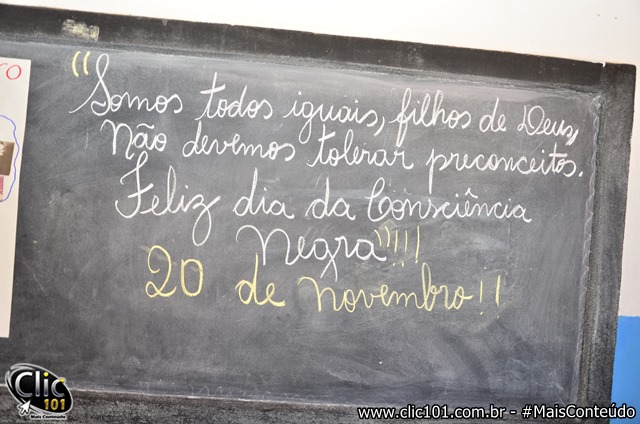 "Somos todos iguais, filhos de Deus,
Não devemos tolerar preconceitos.
Feliz dia da Consciência
Negra"!!!
20 de novembro!!
RO
Clic
101
Mais Conteúdo
www.clic101.com.br - #MaisConteúdo